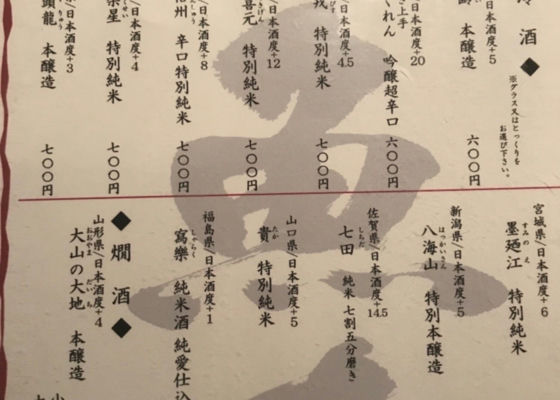 酒◆
※グラス又はとっくりを
お選び下さい。
日本酒度+5
本醸造
六〇〇円
日本酒度+20
くれん 吟醸超辛口
六〇〇円
日本酒度+4.5
特別純米
七〇〇円
日本酒度+12
喜元 特別純米
七〇〇円
日本酒度+8
州 辛口特別純米
七〇〇円
日本酒度+4
星 特別純米
七〇〇円
日本酒度+3
頭龍 本醸造
七〇〇円
宮城県/日本酒度+6
すみのえ
墨廼江 特別純米
新潟県/日本酒度+5
はっかいさん
八海山 特別本醸造
佐賀県/日本酒度+14.5
しちだ
七田 純米 七割五分磨き
山口県/日本酒度+5
たか
貴 特別純米
福島県/日本酒度+1
しゃらく
寫樂 純米酒 純愛仕込
◆燗酒◆
山形県/日本酒度+4
おおやま だいち
大山の大地 本醸造